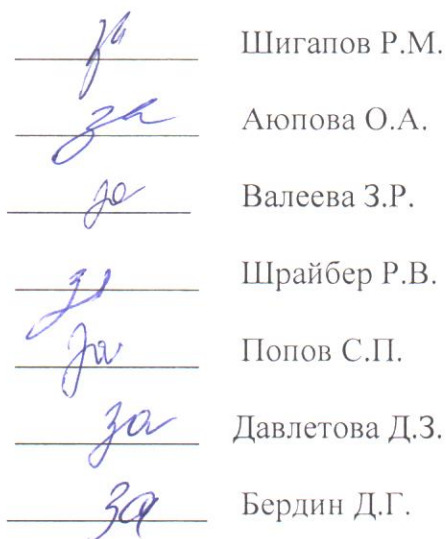 за Шигапов Р.М.
за Аюпова О.А.
за Валеева З.Р.
за Шрайбер Р.В.
за Попов С.П.
за Давлетова Д.З.
за Бердин Д.Г.